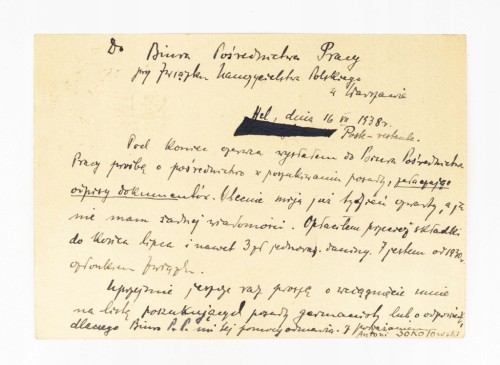 Do Biura Pośrednictwa Pracy
przy Związku Nauczycielstwa Polskiego
w Warszawie
Hel, dnia 16 VII 1938 r.
Poste-restante.
Pod koniec czerwca wysłałem do Biura Pośrednictwa
Pracy prośbę o pośrednictwo w poszukiwaniu posady, załączając
odpisy dokumentów. Obecnie mija już tydzień czwarty, a ja
nie mam żadnej wiadomości. Opłaciłem przecież składki
do końca lipca i nawet 3 zł jednoraz. daniny. I jestem od 1930 r.
członkiem Związku.
Uprzejmie jeszcze raz proszę o wciągnięcie mnie
na listę poszukujących posady germanisty lub o odpowiedź,
dlaczego Biuro P.P. mi tej pomocy odmawia. Z poważaniem
Antoni SOKOŁOWSKI